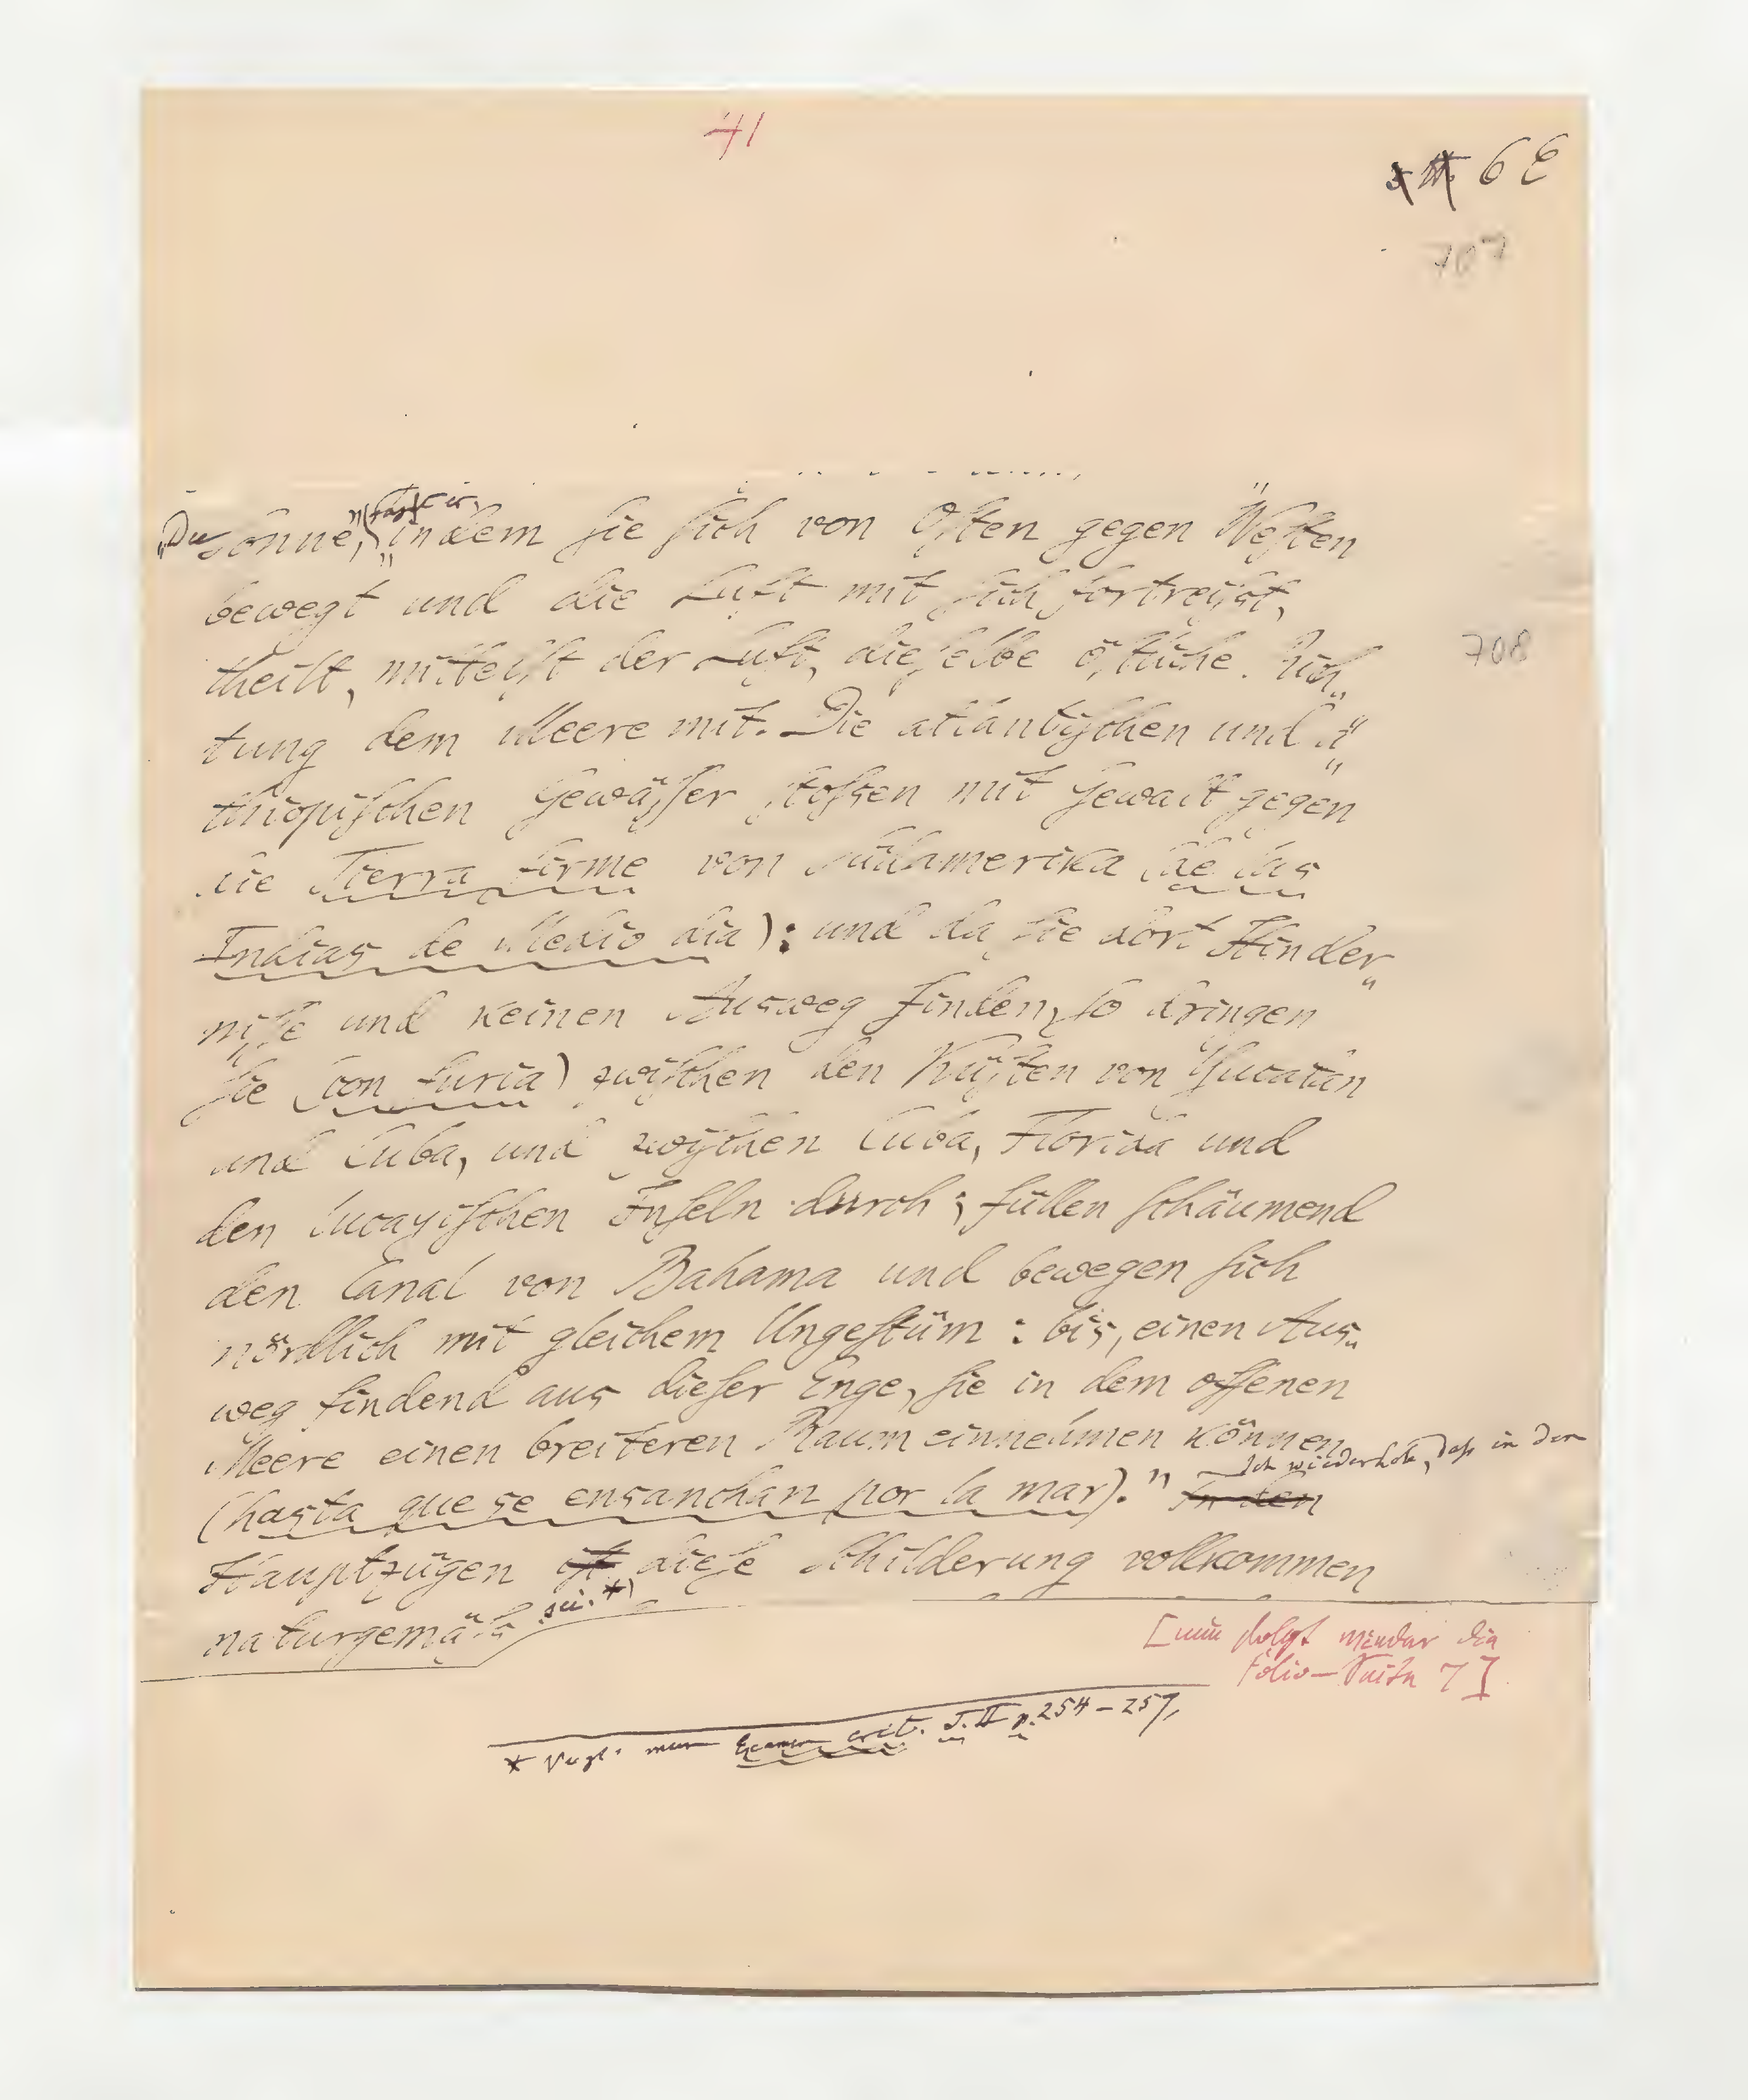 41
6 E
707
„Die Sonne," (sagt er) „indem sie sich von Osten gegen Westen
bewegt und die Luft mit sich fortreißt,
708
theilt, mittelst der Luft, dieselbe östliche Rich„
tung dem Meere mit. Die atlantischen und ä„
thiopischen Gewässer stoßen mit Gewalt gegen
die Tierra firme von Südamerika (de las
Indias de Medio dia): und da sie dort Hinder„
nisse und keinen Ausweg finden, so dringen
sie (con furia) zwischen den Küsten von Yucatan
und Cuba, und zwischen Cuba, Florida und
den lucayischen Inseln durch; füllen schäumend
den Canal von Bahama und bewegen sich
nördlich mit gleichem Ungestüm: bis, einen Aus„
weg findend aus dieser Enge, sie in dem offenen
Meere einen breiteren Raum einnehmen können
(hasta que se ensanchan por la mar)." In den Ich wiederhole, daß in den
Hauptzügen ist diese Schilderung vollkommen
naturgemäß sei. *)
[nun folgt wieder die
Folio-Seite 7]
* Vergl. mein Examen crit. T. II p. 254–257,